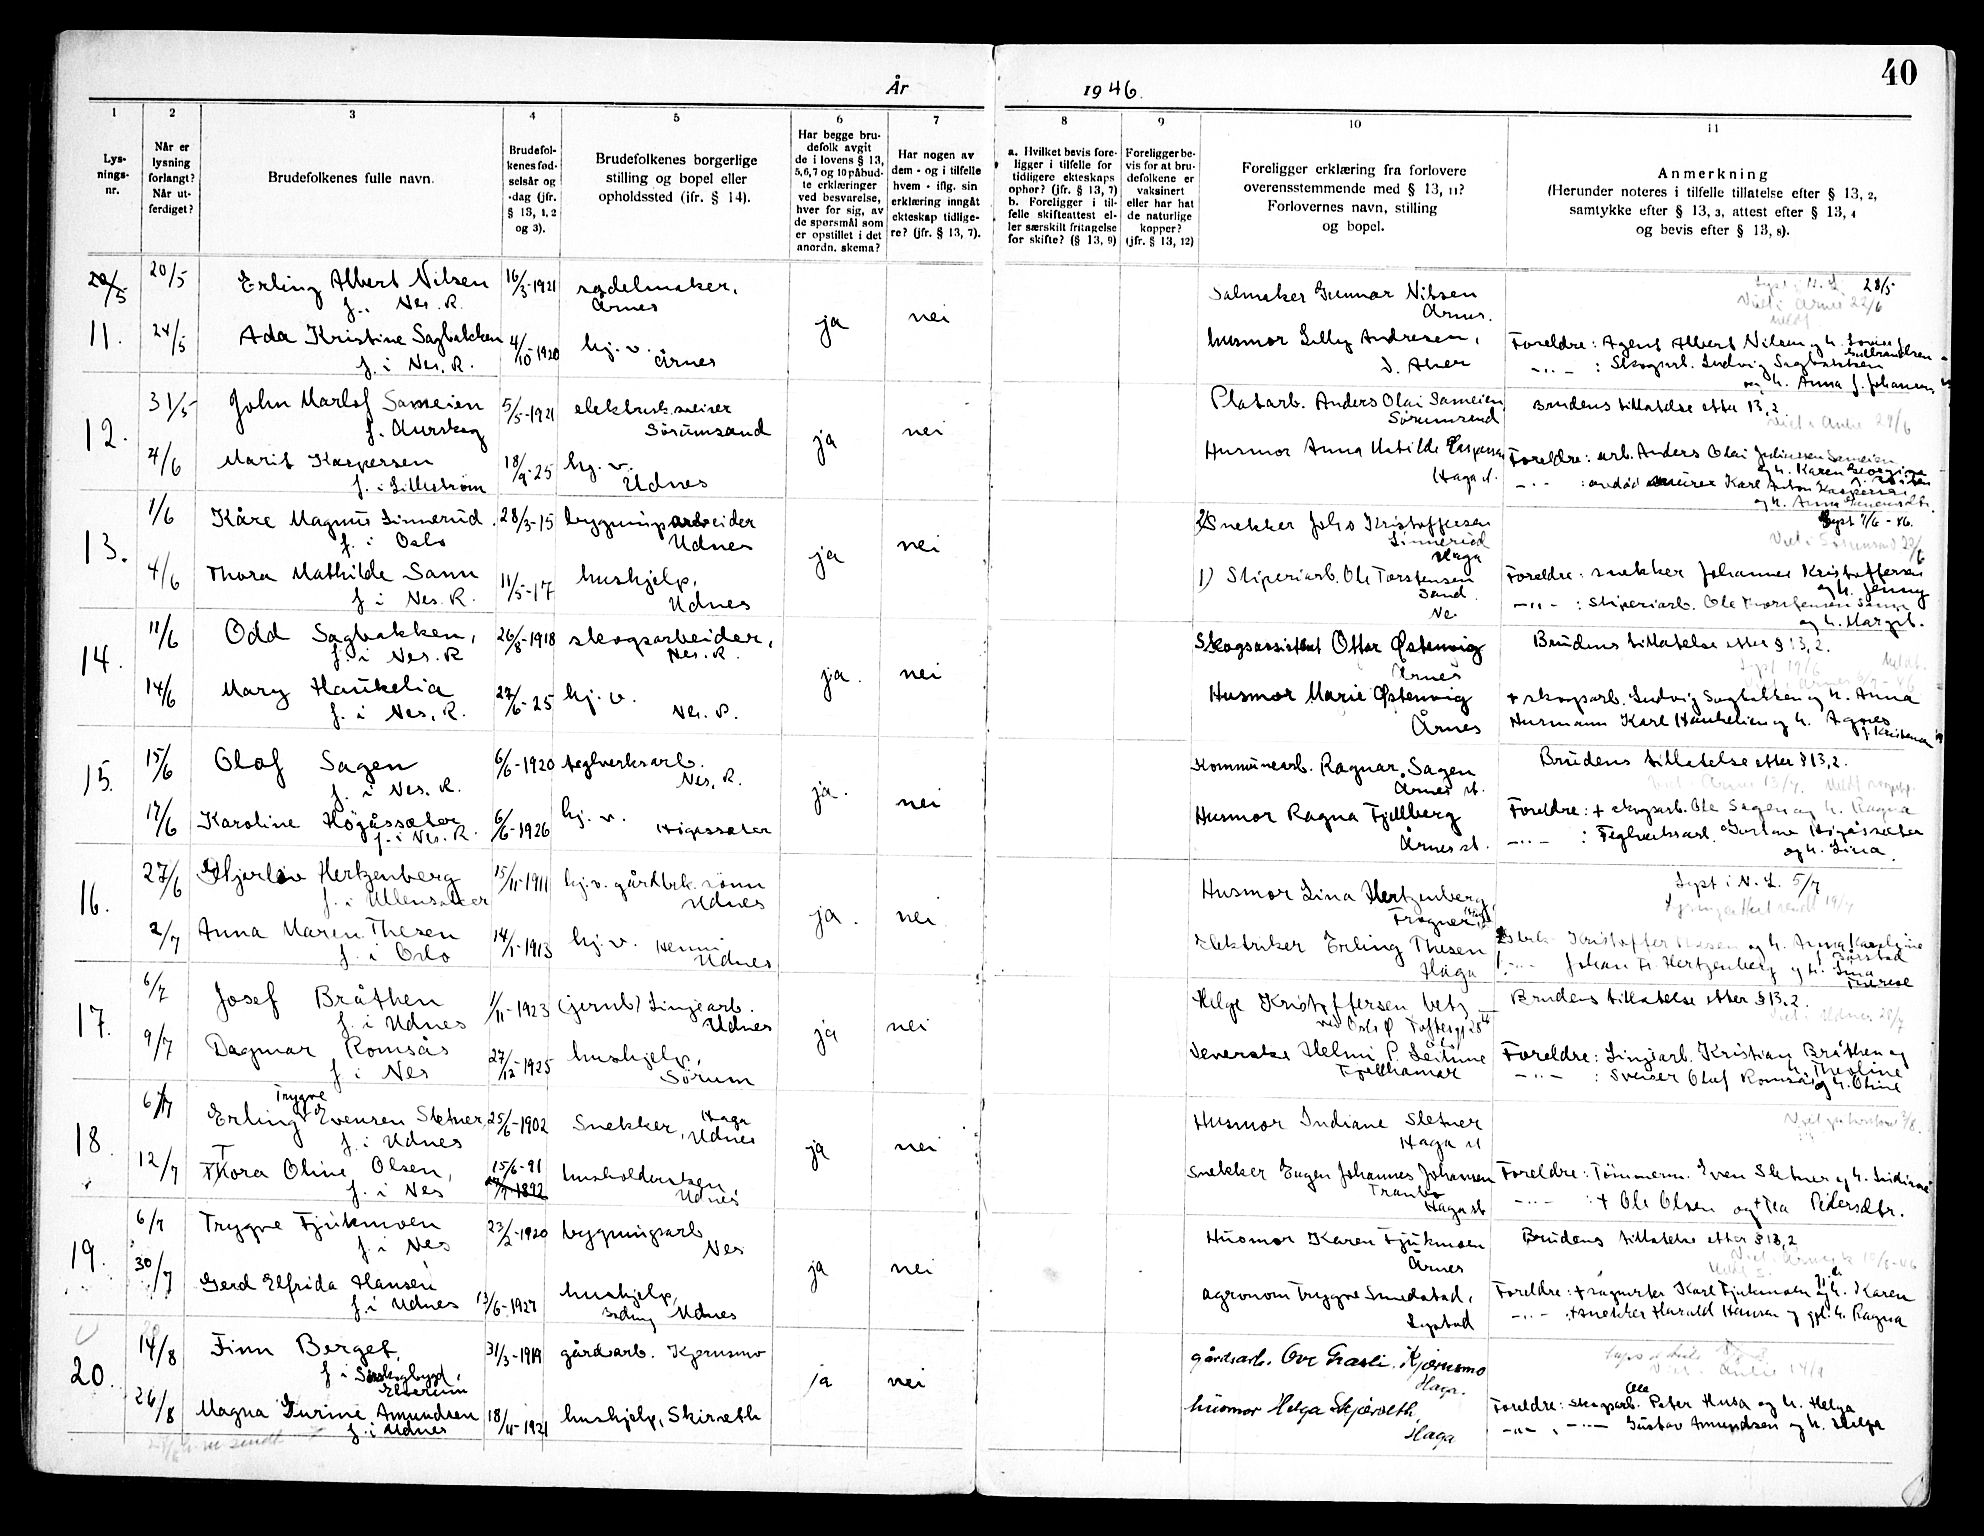 40
År 1946.
1
2
3
4
5
6
7
8
9
10
11
Lys-
nings-
nr.
Når er
lysning
forlangt?
Når ut-
ferdiget?
Brudefolkenes fulle navn.
Brudefol-
kenes fød-
selsår og
-dag (jfr.
§ 13, 1, 2
og 3).
Brudefolkenes borgerlige
stilling og bopel eller
opholdssted (jfr. § 14).
Har begge bru-
defolk avgit
de i lovens § 13,
5,6,7 og 10 påbud-
te erklæringer
ved besvarelse,
hver for sig, av
de spørsmål som
er opstillet i det
anordn. skema?
Har nogen av
dem - og i tilfelle
hvem - iflg. sin
erklæring inngåt
ekteskap tidlige-
re? (jfr. § 13, 7).
a. Hvilket bevis fore-
ligger i tilfelle for
tidligere ekteskaps
ophør? (jfr. § 13, 7)
b. Foreligger i til-
felle skifteattest el-
ler særskilt fritagelse
for skifte? (§ 13, 9)
Foreligger be-
vis for at bru-
defolkene er
vaksinert
eller har hat
de naturlige
kopper?
(jfr. § 13, 12)
Foreligger erklæring fra forlovere
overensstemmende med § 13, 11?
Forlovernes navn, stilling
og bopel.
Anmerkning
(Herunder noteres i tilfelle tillatelse efter § 13, 2,
samtykke efter § 13, 3, attest efter § 13, 4
og bevis efter § 13, 8).
11.
20/5
Erling Albert Nilsen
f. i Nes. R.
16/3-1921
sadelmaker,
Årnes
ja
nei
Salmaker Gunnar Nilsen
Årnes.
28/5
24/5
Ada Kristine Sagbakken
f. i Nes. R.
4/10-1920
hj. v.
Årnes
husmor Lilly Andresen,
Foreldre: Agent Albert Nilsen og h. Lovise f.
Gulbrandsen
— " — : Skogarb. Ludvig Sagbakken
og h. Anna f. Johansen
12.
31/5
John Marlof Sameien
f. Aurskog
5/5-1921
elektrisk sveiser
Sørumsand
ja
nei
Platarb. Anders Olai Sameien
Sørumsand
Brudens tillatelse etter 13,2.
4/6
Marit Kaspersen
f. i Lillestrøm
18/9-25
hj. v.
Udnes
Husmor Anna Matilde Kaspersen
Haga st.
Foreldre: arb. Anders Olai Juliussen Sameien
og h. Karen Georgine
13.
1/6
Kåre Magnus Linnerud
f. i Oslo
28/3-15
bygningsarbeider
Udnes
ja
nei
2) Snekker Johs Kristoffersen
Linnerud
Haga
Lyst 7/6-46.
4/6
Thora Mathilde Sann
f. i Nes. R.
11/5-17
hushjelp,
Udnes
1) Sliperiarb. Ole Torstensen
Sand
Nes
Foreldre: snekker Johannes Kristoffersen
og h. Jenny
— " — : Sliperiarb. Ole Thorstensen Sann
og h. Margit.
14.
11/6
Odd Sagbakken,
f. i Nes. R
26/8-1918
skogsarbeider,
Nes. R.
ja.
nei
Skogsassistent Ottar Østenvig
Årnes
Brudens tillatelse etter § 13, 2.
14/6
Mary Haukelia
f. i Nes. R.
27/6-25
hj. v.
Nes. R.
Husmor Marie Østenvig
Årnes
+ skogsarb. Ludvig Sagbakken og h. Anna
Husmann Karl Haukelien og h. Agnes
f. Kristensen
15.
15/6
Olaf Sagen
f. i Nes. R.
6/6-1920
teglverksarb.
Nes. R.
ja.
nei
Kommunearb. Ragnar Sagen
Årnes st.
Brudens tillatelse etter § 13, 2.
17/6
Karoline Høgåssæter
f. i Nes. R.
6/6-1926
hj. v.
Høgåssæter
Husmor Ragna Fjellberg
Årnes st.
Foreldre: + skogsarb. Ole Sagen og h. Ragna
— " — : Teglverksarb. Gustav Høgåssæter
og h. Lina.
16.
27/6
Hjerløv Hertzenberg
f. i Ullensaker
15/11-1911
hj. v. gårdbrk. sønn
Udnes
ja.
nei
Husmor Lina Hertzenberg,
Frogner
Lyst i N. L. 5/7
2/7
Anna Maren Thesen
f. i Oslo
14/1-1913
hj. v. Henni
Udnes
Elektriker Erling Thesen
Haga
Kristoffer Thesen og h. Anna Karoline
f. Børstad
— " — Johan Fr. Hertzenberg og h. Lina
Therese
17.
6/7
Josef Bråthen
f. i Udnes
1/11-1923
(jernb) Linjearb.
Udnes
ja
nei
Helge Kristoffersen betj.
ved Oslo Ø Toftesgt 28
Brudens tillatelse etter § 13. 2.
9/7
Dagmar Romsås
f. i Nes
27/12-1925
hushjelp,
Sørum
Fjellhamar
Foreldre: Linjearb. Kristian Bråthen og
h. Theoline
— " — : Sveiser Olaf Romsås og h. Oline
18.
6/7
Trygve
Erling Evensen Sletner,
f. i Udnes
25/6-1902
Snekker, Haga
Udnes
ja
nei
Husmor Indiane Sletner
Haga st
12/7
Thora Oline Olsen,
f. i Nes
15/6-91
husholdersken
Udnes
Snekker Eugen Johannes Johansen
Tranbo
Haga st
Foreldre: Tømmerm. Even Sletner og h. Indiane
— " — : + Ole Olsen og + Tea Pedersdtr.
19.
6/7
Trygve Fjukmoen
f. i Nes
23/2-1920
bygningsarb
Nes
ja
nei
Husmor Karen Fjukmoen
Årnes
Brudens tillatelse etter § 13, 2
30/7
Gerd Elfrida Hansen
f. i Udnes
13/6-1927
hushjelp,
Udnes
agronom Tryggve Smedstad,
Foreldre: + Karl Fjukmoen og h. Karen
— " — + snekker Harald Hansen og h. Ragna
20.
14/8
Finn Berget,
f. i Sørskogbygd,
Elverum
31/3-1919
gårdsarb. Kjernsmo
ja
nei
gårdsarb. Ove Græsli. Kjærnsmo
Haga.
26/8
Magna Gurine Amundsen
f. i Udnes
18/11-1921
hushjelp, Skirveth
husmor Helga Skjerveth,
Haga
Foreldre: skogarb. Peter Husa og h. Helga
— " — Gustav Amundsen og h. Helga